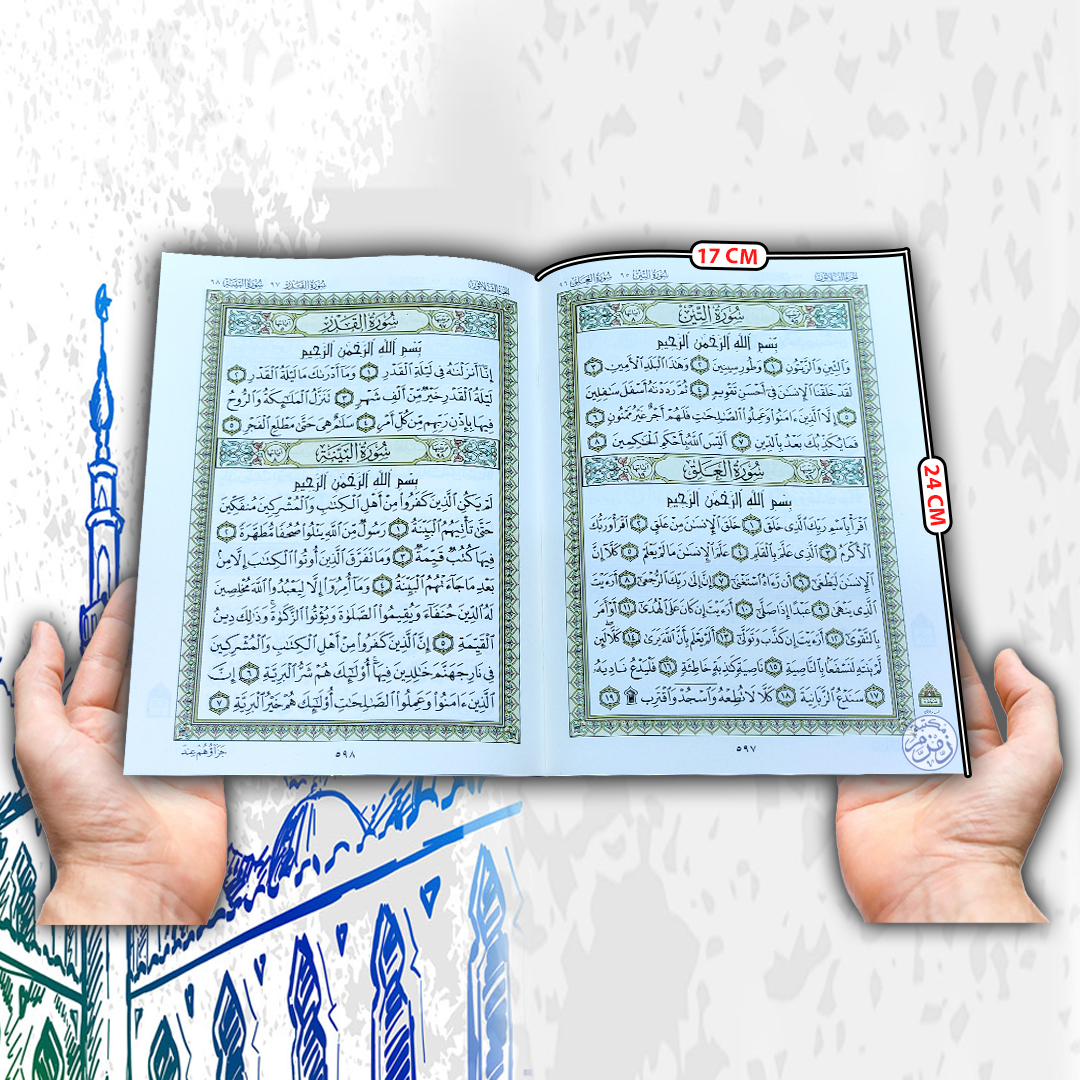 17 CM
24 CM
الجزء الثلاثون سورة التين ٩٥ سورة العلق ٩٦
سورة التين
بسم الله الرحمن الرحيم
وَالتِّينِ وَالزَّيْتُونِ ١ وَطُورِ سِينِينَ ٢ وَهَٰذَا الْبَلَدِ الْأَمِينِ ٣
لَقَدْ خَلَقْنَا الْإِنسَٰنَ فِي أَحْسَنِ تَقْوِيمٍ ٤ ثُمَّ رَدَدْنَٰهُ أَسْفَلَ سَٰفِلِينَ
٥ إِلَّا الَّذِينَ ءَامَنُوا وَعَمِلُوا الصَّٰلِحَٰتِ فَلَهُمْ أَجْرٌ غَيْرُ مَمْنُونٍ ٦
فَمَا يُكَذِّبُكَ بَعْدُ بِالدِّينِ ٧ أَلَيْسَ اللَّهُ بِأَحْكَمِ الْحَٰكِمِينَ ٨
سورة العلق
بسم الله الرحمن الرحيم
اقْرَأْ بِاسْمِ رَبِّكَ الَّذِي خَلَقَ ١ خَلَقَ الْإِنسَٰنَ مِنْ عَلَقٍ ٢ اقْرَأْ وَرَبُّكَ
الْأَكْرَمُ ٣ الَّذِي عَلَّمَ بِالْقَلَمِ ٤ عَلَّمَ الْإِنسَٰنَ مَا لَمْ يَعْلَمْ ٥ كَلَّا إِنَّ
الْإِنسَٰنَ لَيَطْغَىٰ ٦ أَن رَّءَاهُ اسْتَغْنَىٰ ٧ إِنَّ إِلَىٰ رَبِّكَ الرُّجْعَىٰ ٨ أَرَءَيْتَ
الَّذِي يَنْهَىٰ ٩ عَبْدًا إِذَا صَلَّىٰ ١٠ أَرَءَيْتَ إِن كَانَ عَلَى الْهُدَىٰ ١١ أَوْ أَمَرَ
بِالتَّقْوَىٰ ١٢ أَرَءَيْتَ إِن كَذَّبَ وَتَوَلَّىٰ ١٣ أَلَمْ يَعْلَم بِأَنَّ اللَّهَ يَرَىٰ ١٤ كَلَّا لَئِن
لَّمْ يَنتَهِ لَنَسْفَعًا بِالنَّاصِيَةِ ١٥ نَاصِيَةٍ كَٰذِبَةٍ خَاطِئَةٍ ١٦ فَلْيَدْعُ نَادِيَهُ
١٧ سَنَدْعُ الزَّبَانِيَةَ ١٨ كَلَّا لَا تُطِعْهُ وَاسْجُدْ وَاقْتَرِب ۩ ١٩
٥٩٧
مكتبة زمزم
الجزء الثلاثون سورة القدر ٩٧ سورة البينة ٩٨
سورة القدر
بسم الله الرحمن الرحيم
إِنَّا أَنزَلْنَٰهُ فِي لَيْلَةِ الْقَدْرِ ١ وَمَا أَدْرَىٰكَ مَا لَيْلَةُ الْقَدْرِ ٢
لَيْلَةُ الْقَدْرِ خَيْرٌ مِّنْ أَلْفِ شَهْرٍ ٣ تَنَزَّلُ الْمَلَٰٓئِكَةُ وَالرُّوحُ
فِيهَا بِإِذْنِ رَبِّهِم مِّن كُلِّ أَمْرٍ ٤ سَلَٰمٌ هِيَ حَتَّىٰ مَطْلَعِ الْفَجْرِ ٥
سورة البينة
بسم الله الرحمن الرحيم
لَمْ يَكُنِ الَّذِينَ كَفَرُوا مِنْ أَهْلِ الْكِتَٰبِ وَالْمُشْرِكِينَ مُنفَكِّينَ
حَتَّىٰ تَأْتِيَهُمُ الْبَيِّنَةُ ١ رَسُولٌ مِّنَ اللَّهِ يَتْلُوا صُحُفًا مُّطَهَّرَةً ٢
فِيهَا كُتُبٌ قَيِّمَةٌ ٣ وَمَا تَفَرَّقَ الَّذِينَ أُوتُوا الْكِتَٰبَ إِلَّا مِن
بَعْدِ مَا جَاءَتْهُمُ الْبَيِّنَةُ ٤ وَمَا أُمِرُوا إِلَّا لِيَعْبُدُوا اللَّهَ مُخْلِصِينَ
لَهُ الدِّينَ حُنَفَاءَ وَيُقِيمُوا الصَّلَوٰةَ وَيُؤْتُوا الزَّكَوٰةَ وَذَٰلِكَ دِينُ
الْقَيِّمَةِ ٥ إِنَّ الَّذِينَ كَفَرُوا مِنْ أَهْلِ الْكِتَٰبِ وَالْمُشْرِكِينَ
فِي نَارِ جَهَنَّمَ خَٰلِدِينَ فِيهَا أُو۟لَٰٓئِكَ هُمْ شَرُّ الْبَرِيَّةِ ٦ إِنَّ
الَّذِينَ ءَامَنُوا وَعَمِلُوا الصَّٰلِحَٰتِ أُو۟لَٰٓئِكَ هُمْ خَيْرُ الْبَرِيَّةِ ٧
جَزَاؤُهُمْ عِندَ
٥٩٨